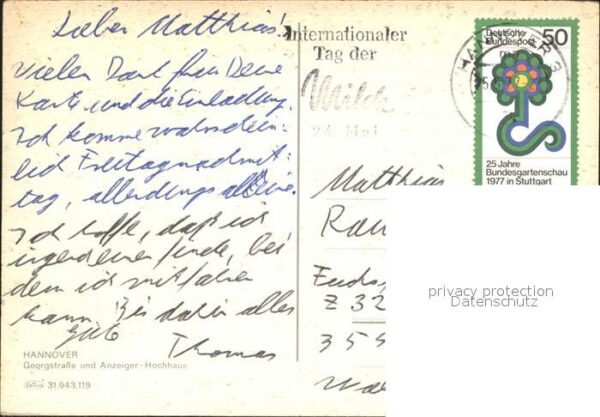 Lieber Matthias!
Vielen Dank für Deine
Karte und die Einladung.
Ich komme wahrschein-
lich Freitagnachmit-
tag, allerdings alleine.
Ich hoffe, daß ich
irgendeinen finde, bei
dem ich mitfahren
kann. Bis dahin alles
Gute
Thomas
HANNOVER
Georgstraße und Anzeiger-Hochhaus
31 943.119
Internationaler
Tag der
Milch
24. Mai
HANNOVER
Deutsche
Bundespost
50
25 Jahre
Bundesgartenschau
1977 in Stuttgart
Matthias
Z 32
355
privacy protection
Datenschutz